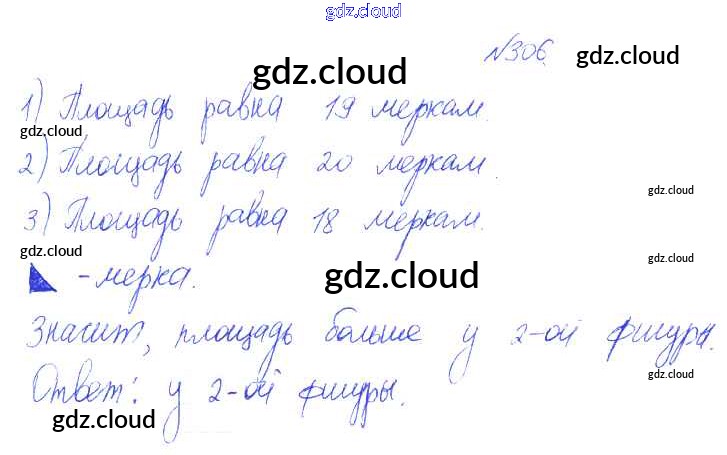 gdz.cloud
№306 gdz.cloud
gdz.cloud
1) Площадь равна 19 меркам.
gdz.cloud
2) Площадь равна 20 меркам.
gdz.cloud
3) Площадь равна 18 меркам.
gdz.cloud
gdz.cloud
- мерка.
gdz.cloud
Значит, площадь больше у 2-ой фигуры.
gdz.cloud
Ответ: у 2-ой фигуры.
gdz.cloud